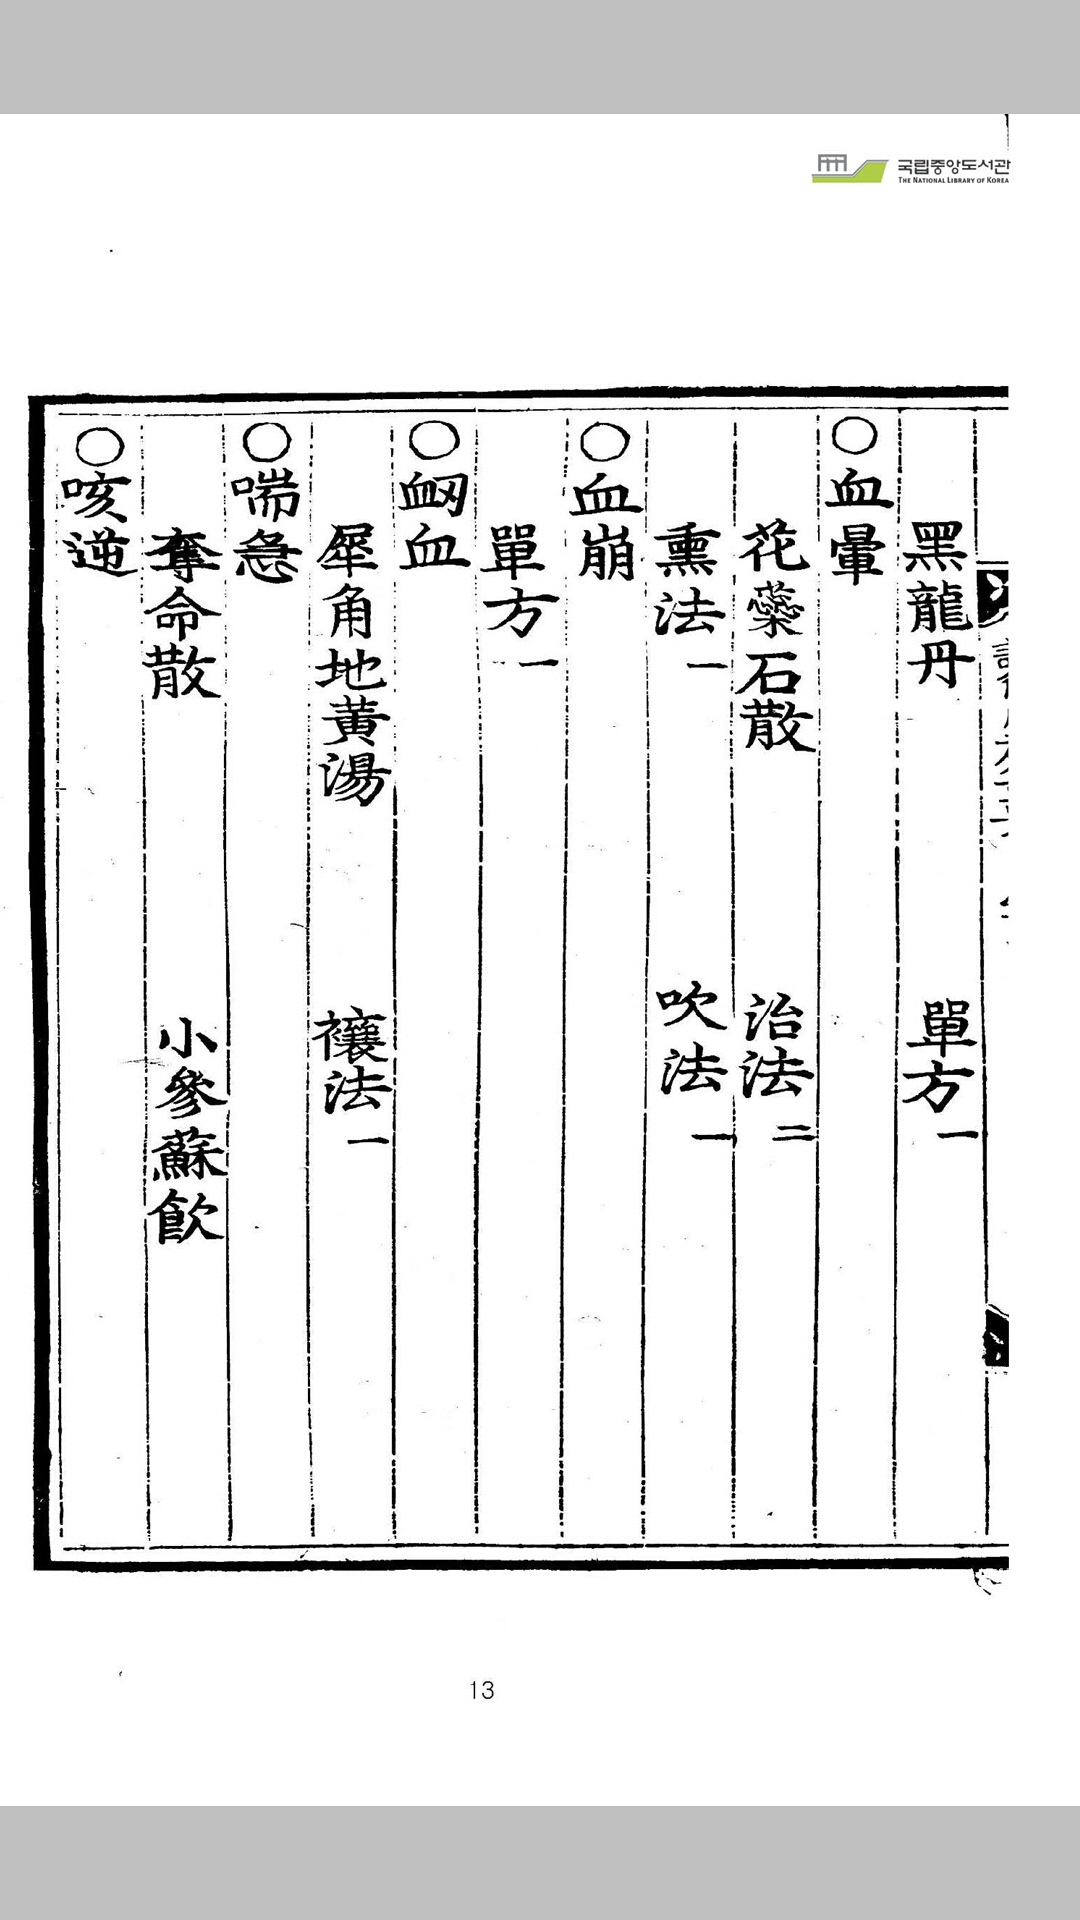 국립중앙도서관
THE NATIONAL LIBRARY OF KOREA
黑龍丹 單方一
○血暈
花蘂石散 治法二
熏法一 吹法一
○血崩
單方一
○衂血
犀角地黄湯 禳法一
○喘急
奪命散 小參蘇飮
○咳逆
13